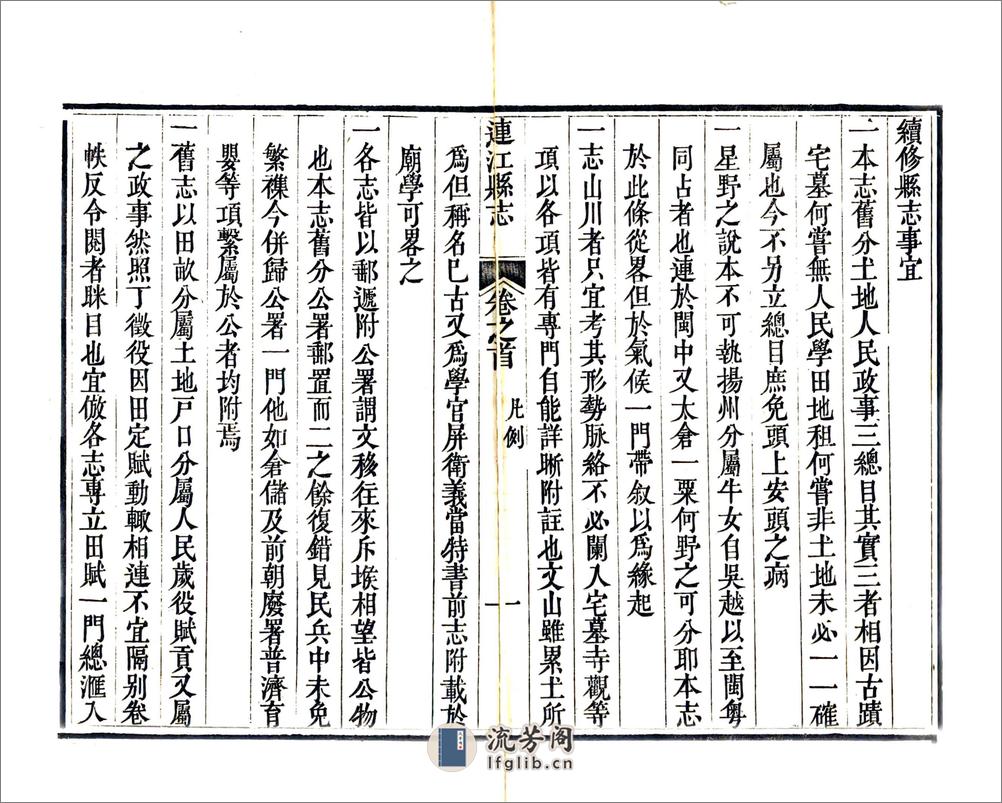 續修縣志事宜
一本志舊分土地人民政事三總目其實三者相因古蹟
宅墓何嘗無人民學田地租何嘗非土地未必一一確
屬也今不另立總目庶免頭上安頭之病
一星野之說本不可執揚州分屬牛女自吳越以至閩粵
同占者也連於閩中又太倉一粟何野之可分耶本志
於此條從畧但於氣候一門帶叙以爲緣起
一志山川者只宜考其形勢脉絡不必闌入宅墓寺觀等
項以各項皆有專門自能詳晰附註也文山雖累土所
連江縣志
卷之首
凡例
一
爲但稱名已古又爲學官屏衛義當特書前志附載於
廟學可畧之
一各志皆以郵遞附公署謂文移往來斥堠相望皆公物
也本志舊分公署郵置而二之餘復錯見民兵中未免
繁襍今併歸公署一門他如倉儲及前朝廢署普濟育
嬰等項繫屬於公者均附焉
一舊志以田畝分屬土地戶口分屬人民歲役賦貢又屬
之政事然照丁徵役因田定賦動輒相連不宜隔別卷
帙反令閱者眯目也宜倣各志專立田賦一門總滙入
流芳阁
lfglib.cn